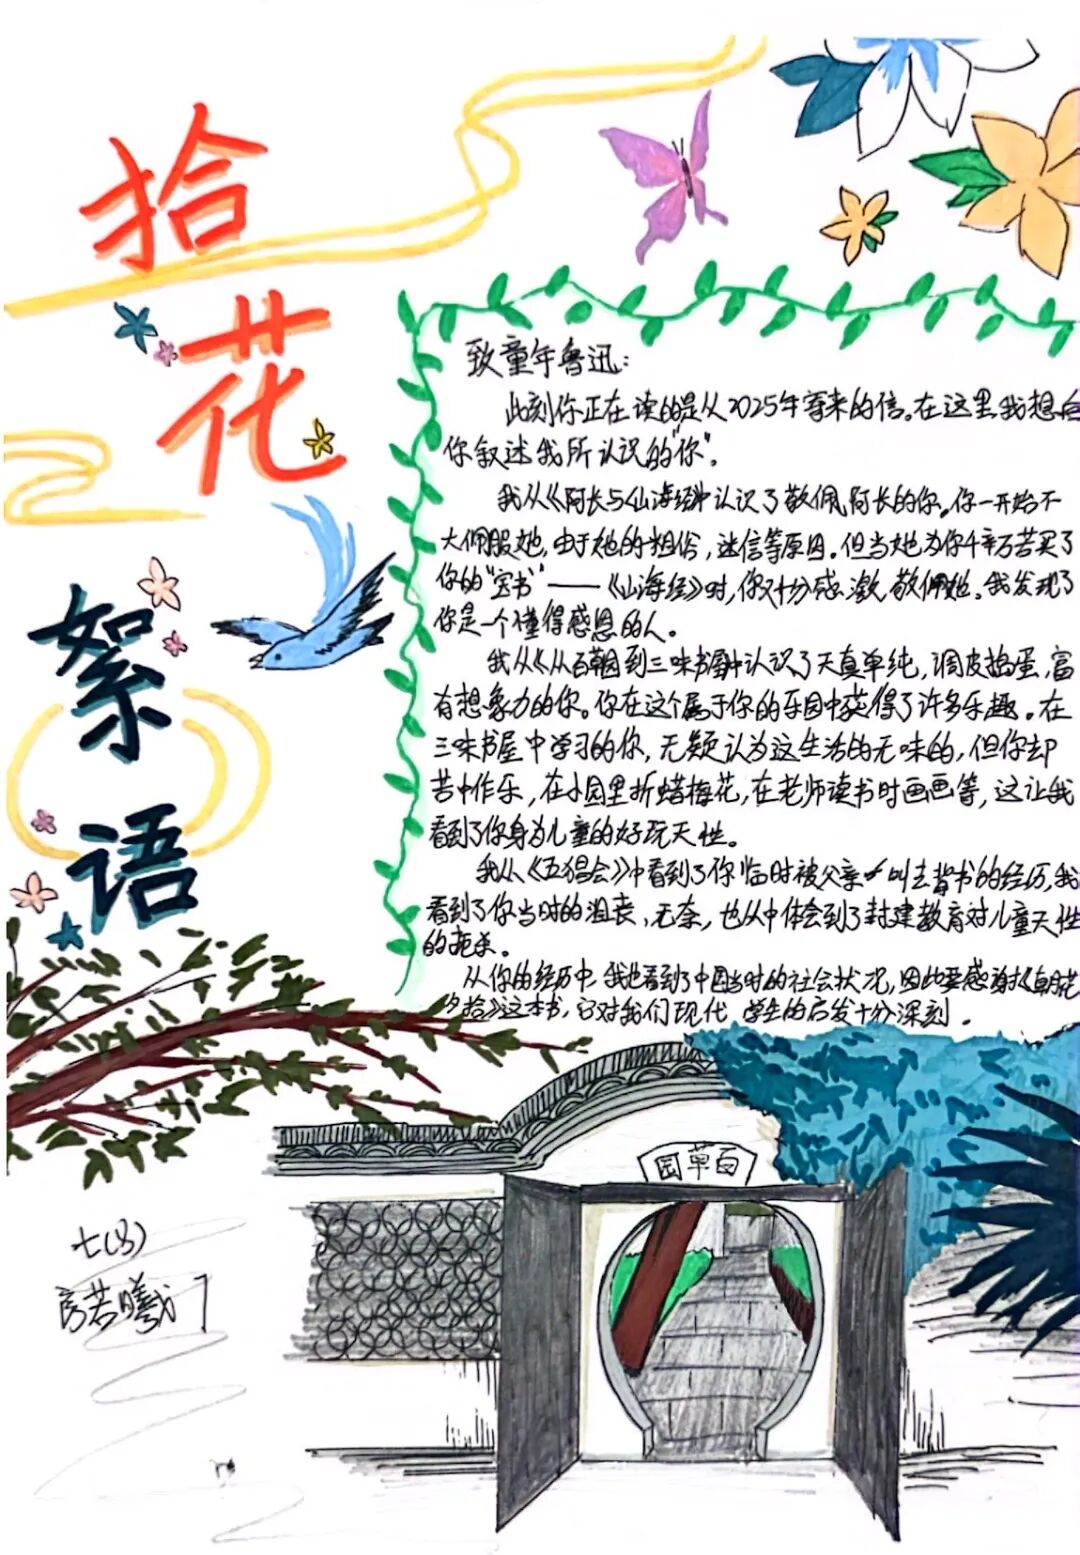 拾花
絮语
致童年鲁迅：
此刻你正在读的是从2025年寄来的信。在这里我想向
你叙述我所认识的“你”。
我从《阿长与《山海经》中认识了敬佩阿长的你。你一开始不
大佩服她，由于她的粗俗，迷信等原因。但当她为你千辛万苦买了
你的“宝书”——《山海经》时，你又十分感激，敬佩她。我发现了
你是一个懂得感恩的人。
我从《从百草园到三味书屋》中认识了天真单纯，调皮捣蛋，富
有想象力的你。你在这个属于你的乐园中获得了许多乐趣。在
三味书屋中学习的你，无疑认为这生活的无味的，但你却
苦中作乐，在小园里折蜡梅花，在老师读书时画画等，这让我
看到了你身为儿童的好玩天性。
我从《五猖会》中看到了你临时被父亲叫去背书的经历，我
看到了你当时的沮丧，无奈，也从中体会到了封建教育对儿童天性
的扼杀。
从你的经历中，我也看到了中国当时的社会状况，因此要感谢《朝花
夕拾》这本书，它对我们现代学生的启发十分深刻。
园草百
七(3)
房若曦